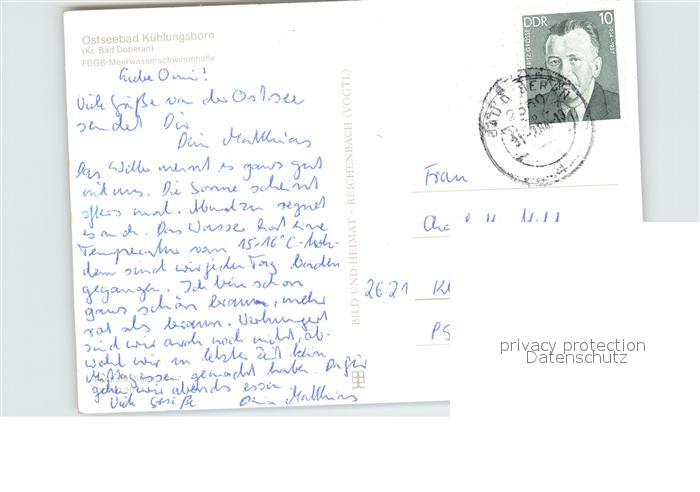 Ostseebad Kühlungsborn
(Kr. Bad Doberan)
FDGB-Meerwasserschwimmhalle
Liebe Omi!
Viele Grüße von der Ostsee
sendet Dir
Dein Matthias
Das Wetter meint es ganz gut
mit uns. Die Sonne scheint
öfters mal. Ab und zu regnet
es auch. Das Wasser hat eine
Temperatur von 15-16°C. Trotz-
dem sind wir jeden Tag baden
gegangen. Ich bin schon
ganz schön braun, mehr
rot als braun. Verhungert
sind wir auch noch nicht, ob-
wohl wir in letzter Zeit kein
Mittagessen gemacht haben. Dafür
gehen wir abends essen.
Viele Grüße Dein Matthias
BILD UND HEIMAT · REICHENBACH (VOGTL)
DDR 10
BAD DOBERAN
Frau
2621
privacy protection
Datenschutz